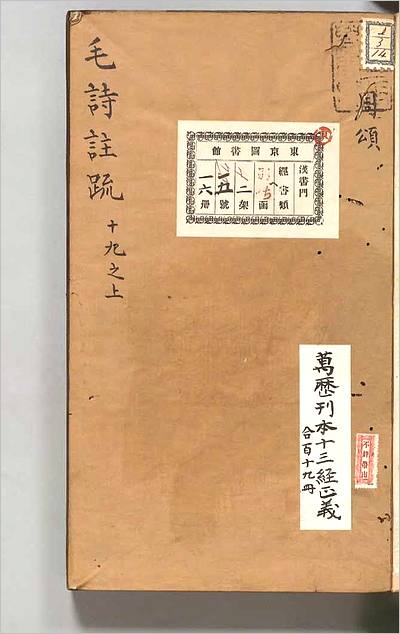 毛詩註疏
十九之上
周頌
東京圖書館
漢書門
經書類
函
二架
五號
一六冊
萬曆刊本十三経正義
合百十九冊